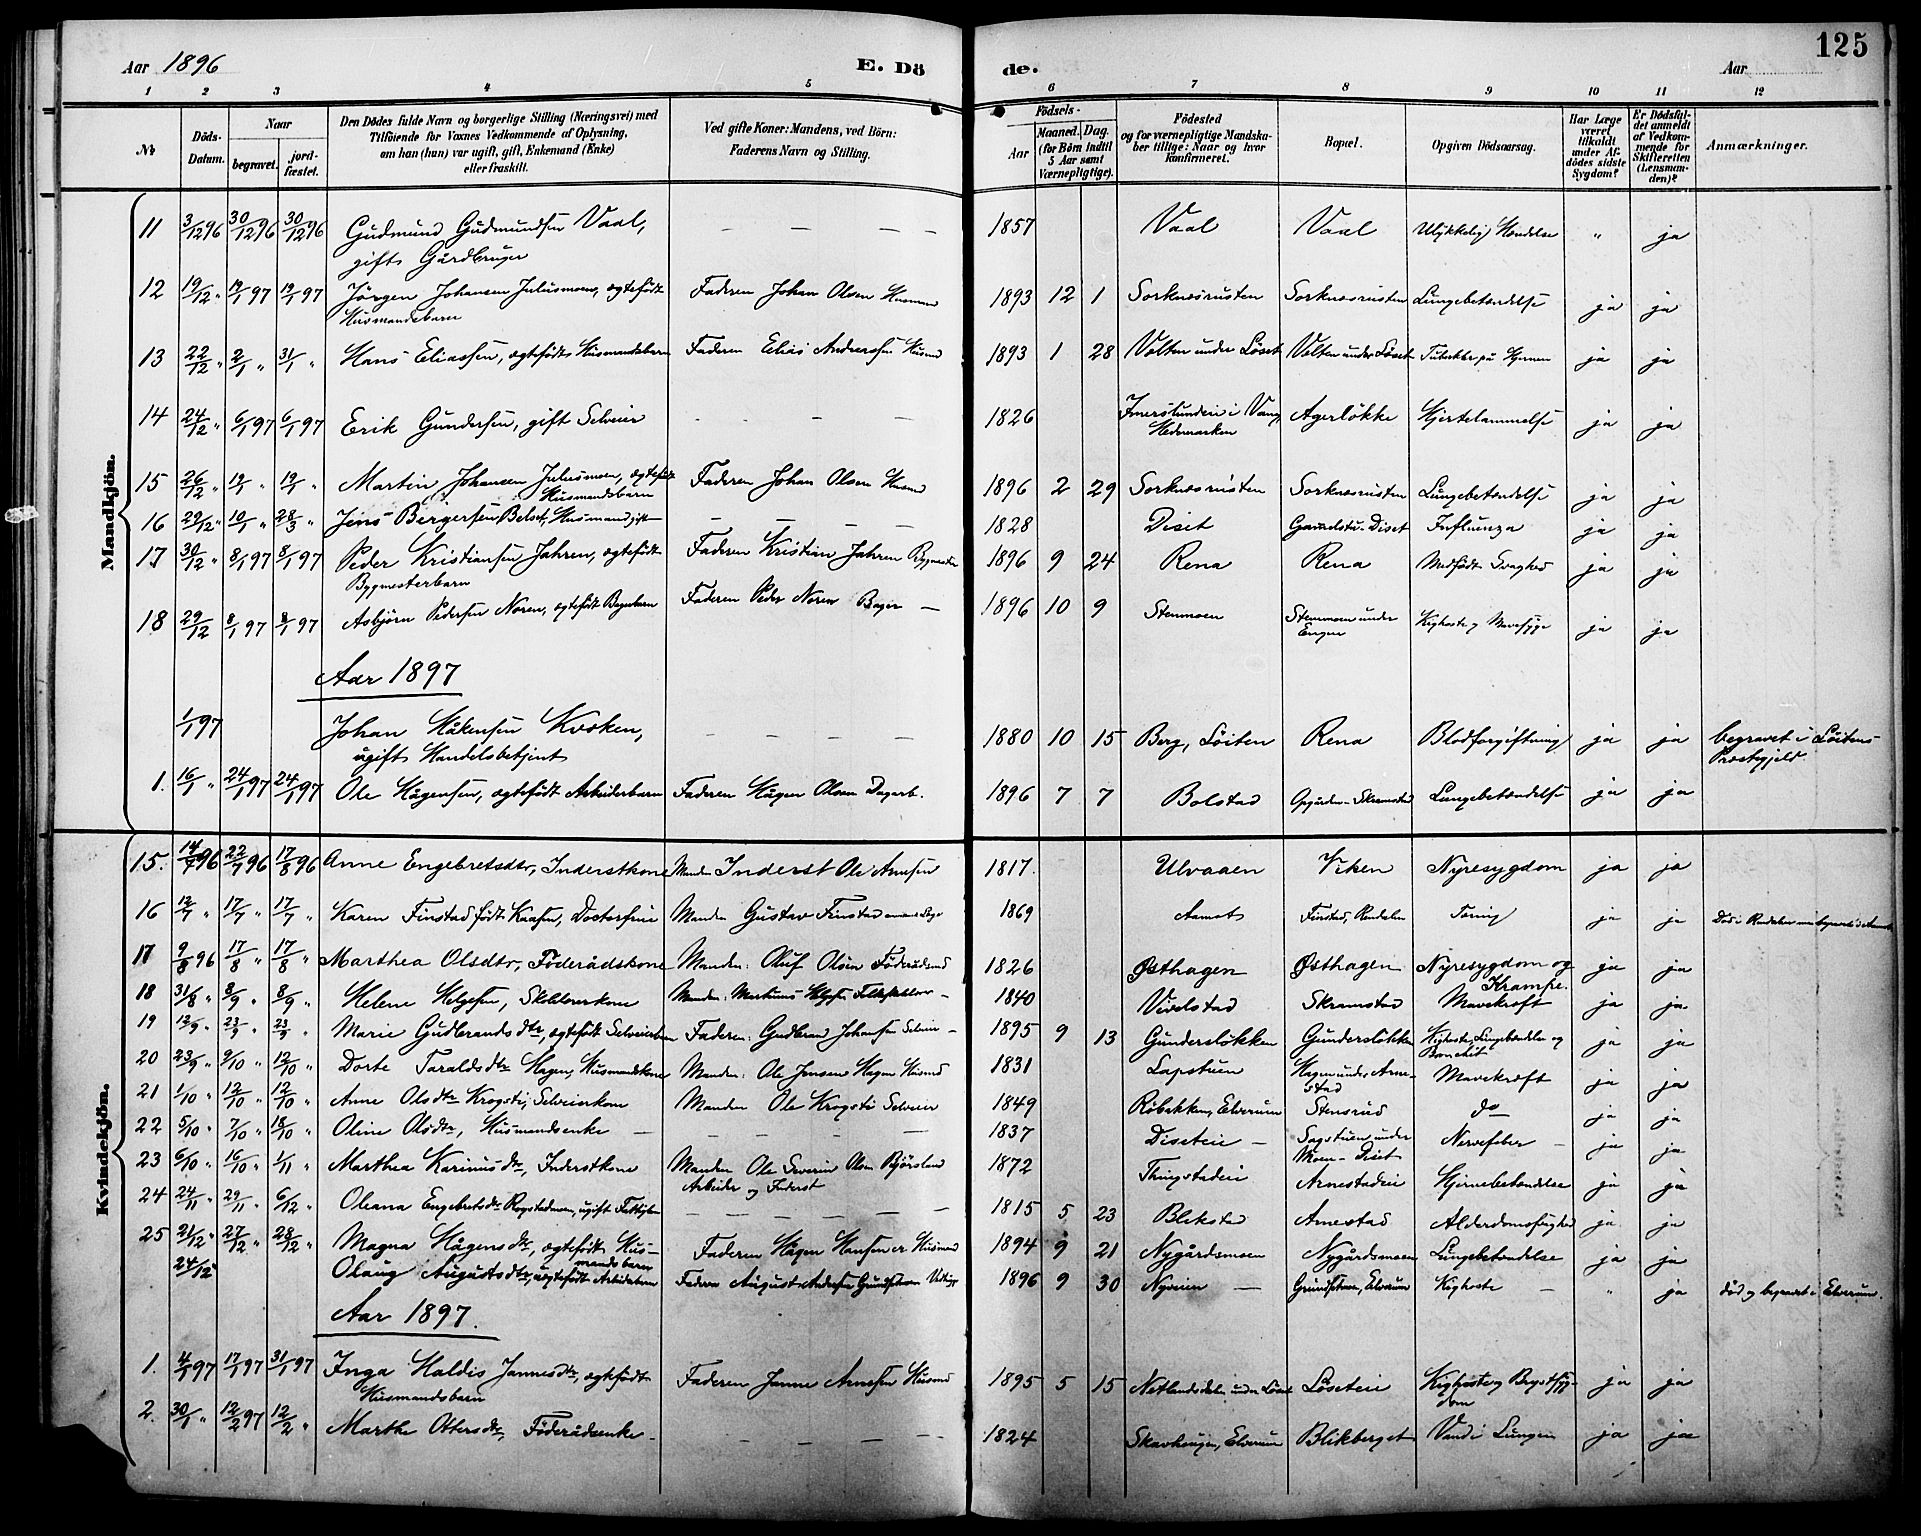 Aar 1896
E. Dö de.
Aar
125
1 2 3 4 5 6 7 8 9 10 11 12
№
Döds-Datum.
Naar
begravet.
jordfæstet.
Den Dødes fulde Navn og borgerlige Stilling (Næringsvei) med
Tilföiende for Voxnes Vedkommende af Oplysning,
om han (hun) var ugift, gift, Enkemand (Enke)
eller fraskilt.
Ved gifte Koner: Mandens, ved Börn:
Faderens Navn og Stilling.
Födsels-
Aar
Maaned. Dag.
(for Börn indtil
5 Aar samt
Værnepligtige).
Födested
og for værnepligtige Mandskaber tillige: Naar og hvor
konfirmeret.
Bopæl.
Opgiven Dödsaarsag.
Har Læge
været
tilkaldt
under Afdödes sidste
Sygdom?
Er Dödsfaldet anmeldt
af Vedkommende for
Skifteretten
(Lensmanden)?
Anmærkninger.
Mandkjön.
11 3/12 96 30/12 96 30/12 96 Gudmund Gudmundsen Vaal, — — — — 1857 Vaal Vaal Ulykkelig Hændelse " ja
gift Gårdbruger
12 19/12 " 19/1 97 19/1 97 Jörgen Johansen Juliusmoen, ægtefödt Faderen Johan Olsen Husmand 1893 12 1 Sorknæsrusten Sorknæsrusten Lungebetændelse ja ja
Husmandsbarn
13 22/12 " 2/1 " 31/1 " Hans Eliassen, ægtefödt Husmandsbarn Faderen Elias Andreassen Husmd 1893 1 28 Volten under Löset Volten under Löset Tuberkler på Hjernen ja ja
14 24/12 " 6/1 97 6/1 97 Erik Gundersen, gift Selveier — — — 1826 Imerslundeie i Vang, Agerløkke Hjertelammelse ja ja
Hedemarken
15 26/12 " 19/1 " 19/1 " Martin Johansen Juliusmoen, ægtefödt Faderen Johan Olsen Husmd 1896 2 29 Sorknæsrusten Sorknæsrusten Lungebetændelse ja ja
Husmandsbarn
16 29/12 " 10/1 " 28/3 " Jens Bergersen Belset, Husmand gift — — — — 1828 Diset Gamlestu-Diset Influenza ja ja
17 30/12 " 8/1 97 8/1 97 Peder Kristiansen Jahren, ægtefödt Faderen Kristian Jahren Bygmester 1896 9 24 Rena Rena Medfödt Svaghed ja ja
Bygmesterbarn
18 29/12 8/1 97 8/1 97 Asbjörn Pedersen Noren, ægtefödt Bagerbarn Faderen Peder Noren Bager — 1896 10 9 Stenmoen Stenmoen under Kighoste og Mavesyge ja ja
Engen
Aar 1897
1/1 97 Johan Håkensen Kvæken, — — — — 1880 10 15 Berg, Löiten Rena Blodforgiftning ja ja begravet i Löitens
ugift Handelsbetjent Præstegjeld.
1. 16/1 " 24/1 97 24/1 97 Ole Hågensen, ægtefödt Arbeiderbarn Faderen Hågen Olsen Dagarb. 1896 7 7 Bolstad Opgården-Skramstad Lungebetændelse ja ja
Kvindekjön.
15. 14/7 96 22/7 96 17/8 96 Anne Engebretsdtr, Inderstkone Manden Inderst Ole Arnesen 1817 Ulvaaen Viken Nyresygdom ja ja
16 12/7 " 17/7 " 17/7 " Karen Finstad födt Kaasen, Doctorfrue Manden Gustav Finstad 1869 Aamot Finstad, Rendalen Tæring ja ja Död i Rendalen men begravet i Aamot
17 9/8 96 17/8 " 17/8 " Marthea Olsdtr, Föderådskone Manden: Oluf Olsen Föderådsmd 1826 Østhagen Østhagen Nyresygdom og ja ja
Krampe.
18 31/8 " 8/9 " 8/9 " Helene Helgesen, Skolelærerkone Manden: Markus Helgesen — 1840 Vivelstad Skramstad Mavekræft ja ja
19 12/9 " 23/9 " 23/9 " Marie Gudbrandsdtr, ægtefödt Selveierbarn Faderen: Gudbrand Johansen Selveier — 1895 9 13 Gundersløkken Gundersløkken Kighoste, Lungebetændelse og ja ja
Bronchit
20 23/9 " 9/10 " 12/10 " Dorte Taraldsdtr Hagen, Husmandskone Manden: Ole Jensen Hagen Husmd 1831 Lapstuen Hagen under Arne- Mavekræft ja ja
stad
21 1/10 " 12/10 " 12/10 " Anne Olsdtr Krogsti, Selveierkone Manden Ole Krogsti Selveier 1849 Röbækken, Elverum Stensrud do ja ja
22 5/10 " 7/10 " 18/10 " Oline Olsdtr, Husmandsenke — — — — — 1837 Diseteie — Sagstuen under Nervefeber — ja ja
Moen-Diset
23 6/10 " 16/10 " 1/11 " Marthea Karinusdtr, Inderstkone Manden Ole Severin Olsen Bjørslund 1872 Thingstadeie Arnestadeie Hjernebetændelse ja ja
Arbeider og Inderst
24 24/11 " 29/11 " 6/12 " Oleana Engebretsdtr Rogstadmoen, ugift Fattiglem — — — — — 1815 5 23 Blikstad Arnestad Alderdomssvaghed ja ja
25 21/12 " 27/12 " 28/12 " Magna Hågensdtr, ægtefödt Hus- Faderen Hågen Hansen er Husmand 1894 9 21 Nygårdsmoen Nygårdsmoen Lungebetændelse ja ja
mandsbarn
24/12 Olaug Augustsdtr, uægtefödt Arbeiderbarn Faderen August Andersen Grundsetmoen 1896 9 30 Nyveien — Grundsetmoen, Elverum Kighoste — " ja död og begravet i Elverum.
Aar 1897.
1. 4/1 97 17/1 97 31/1 97 Inga Haldis Jannesdtr, ægtefödt Faderen Janne Arnesen Husmd 1895 5 15 Netlandsdelen under Löset Löseteie Kighoste og Brystsyg- ja ja
Husmandsbarn dom
2. 30/1 " 12/2 97 12/2 " Marthe Ottersdtr, Föderådsenke — — — — 1824 Skavhaugen, Elverum Blikberget Vand i Lungen ja ja